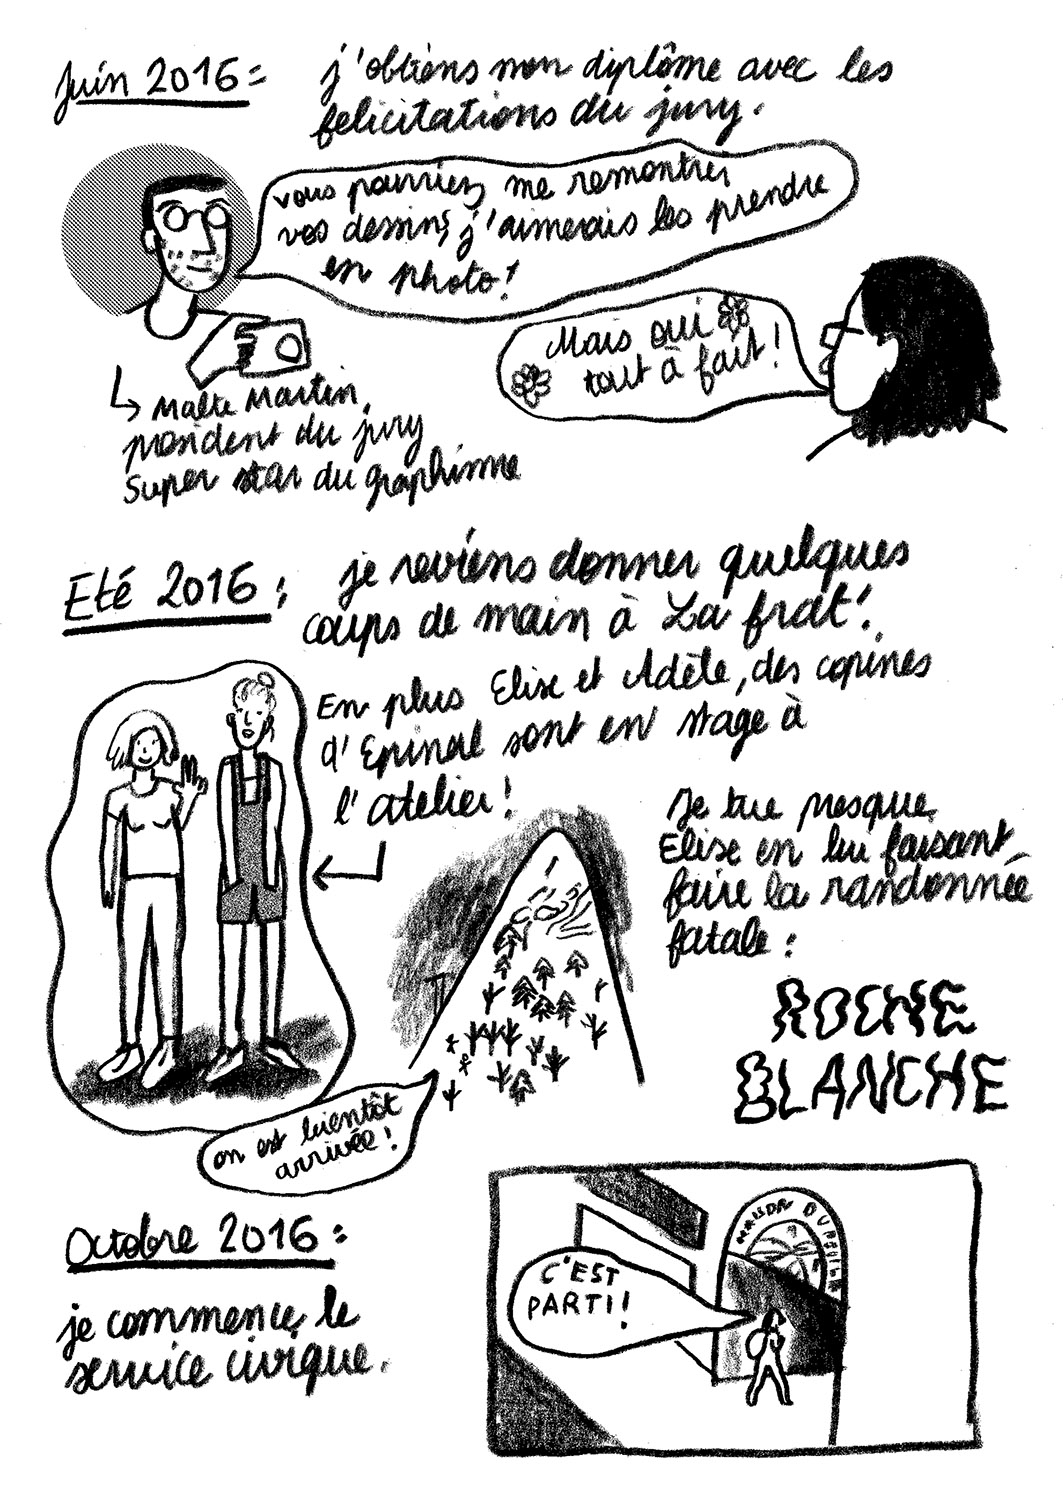 Juin 2016 :
j'obtiens mon diplôme avec les
felicitations du jury.
vous pourriez me remontrer
vos dessins, j'aimerais les prendre
en photo !
Mais oui
tout à fait !
Malte Martin,
president du jury
Super star du graphisme
Eté 2016 :
je reviens donner quelques
coups de main à La frat !
En plus Elise et Adèle, des copines
d'Epinal sont en stage à
l'atelier !
Je tue presque
Elise en lui faisant
faire la randonnée
fatale :
ROCHE
BLANCHE
on est bientôt
arrivée !
Octobre 2016 :
je commence le
service civique.
C'EST
PARTI !